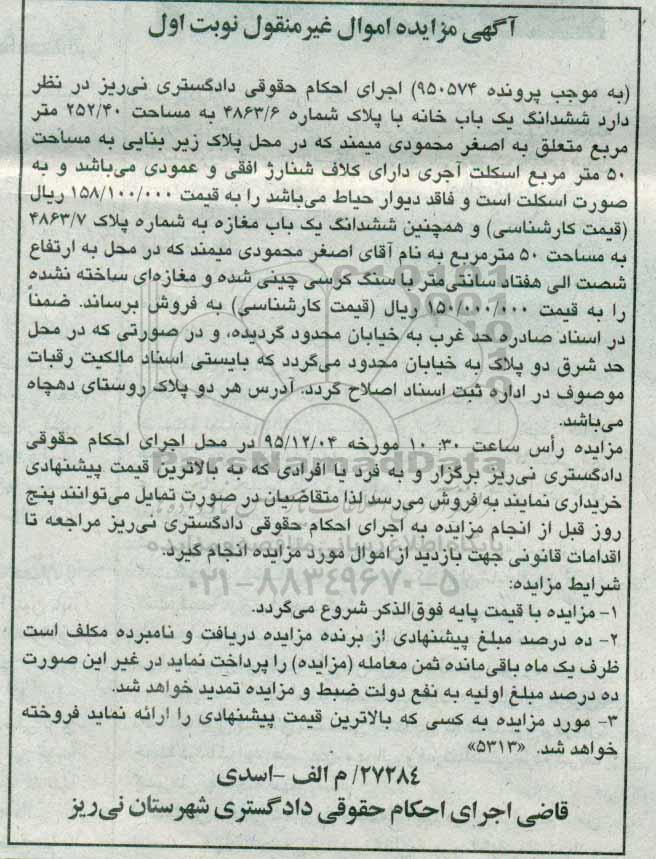 آگهی مزایده اموال غیرمنقول نوبت اول
(به موجب پرونده ۹۵۰۵۷۴) اجرای احکام حقوقی دادگستری نی‌ریز در نظر
دارد ششدانگ یک باب خانه با پلاک شماره ۴۸۶۳/۶ به مساحت ۲۵۲/۴۰ متر
مربع متعلق به اصغر محمودی میمند که در محل پلاک زیر بنایی به مساحت
۵۰ متر مربع اسکلت آجری دارای کلاف شنارژ افقی و عمودی می‌باشد و به
صورت اسکلت است و فاقد دیوار حیاط می‌باشد را به قیمت ۱۵۸/۱۰۰/۰۰۰ ریال
(قیمت کارشناسی) و همچنین ششدانگ یک باب مغازه به شماره پلاک ۴۸۶۳/۷
به مساحت ۵۰ مترمربع به نام آقای اصغر محمودی میمند که در محل به ارتفاع
شصت الی هفتاد سانتی‌متر با سنگ کرسی چینی شده و مغازه‌ای ساخته نشده
را به قیمت ۱۵۰/۰۰۰/۰۰۰ ریال (قیمت کارشناسی) به فروش برساند. ضمناً
در اسناد صادره حد غرب به خیابان محدود گردیده، و در صورتی که در محل
حد شرق دو پلاک به خیابان محدود می‌گردد که بایستی اسناد مالکیت رقبات
موصوف در اداره ثبت اسناد اصلاح گردد. آدرس هر دو پلاک روستای دهچاه
می‌باشد.
مزایده رأس ساعت ۱۰:۳۰ مورخه ۹۵/۱۲/۰۴ در محل اجرای احکام حقوقی
دادگستری نی‌ریز برگزار و به فرد یا افرادی که به بالاترین قیمت پیشنهادی
خریداری نمایند به فروش می‌رسد لذا متقاضیان در صورت تمایل می‌توانند پنج
روز قبل از انجام مزایده به اجرای احکام حقوقی دادگستری نی‌ریز مراجعه تا
اقدامات قانونی جهت بازدید از اموال مورد مزایده انجام گیرد.
شرایط مزایده:
۱- مزایده با قیمت پایه فوق‌الذکر شروع می‌گردد.
۲- ده درصد مبلغ پیشنهادی از برنده مزایده دریافت و نامبرده مکلف است
ظرف یک ماه باقی‌مانده ثمن معامله (مزایده) را پرداخت نماید در غیر این صورت
ده درصد مبلغ اولیه به نفع دولت ضبط و مزایده تمدید خواهد شد.
۳- مورد مزایده به کسی که بالاترین قیمت پیشنهادی را ارائه نماید فروخته
خواهد شد. «۵۳۱۳»
۲۷۲۸۴/ م الف -اسدی
قاضی اجرای احکام حقوقی دادگستری شهرستان نی‌ریز
ParsNamadData
۰۲۱-۸۸۳۴۹۶۷۰-۵